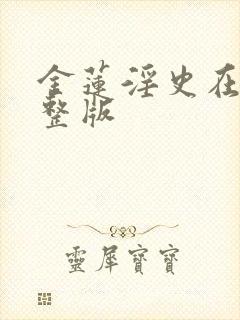 金蓮淫史在
整版
靈犀寶寶